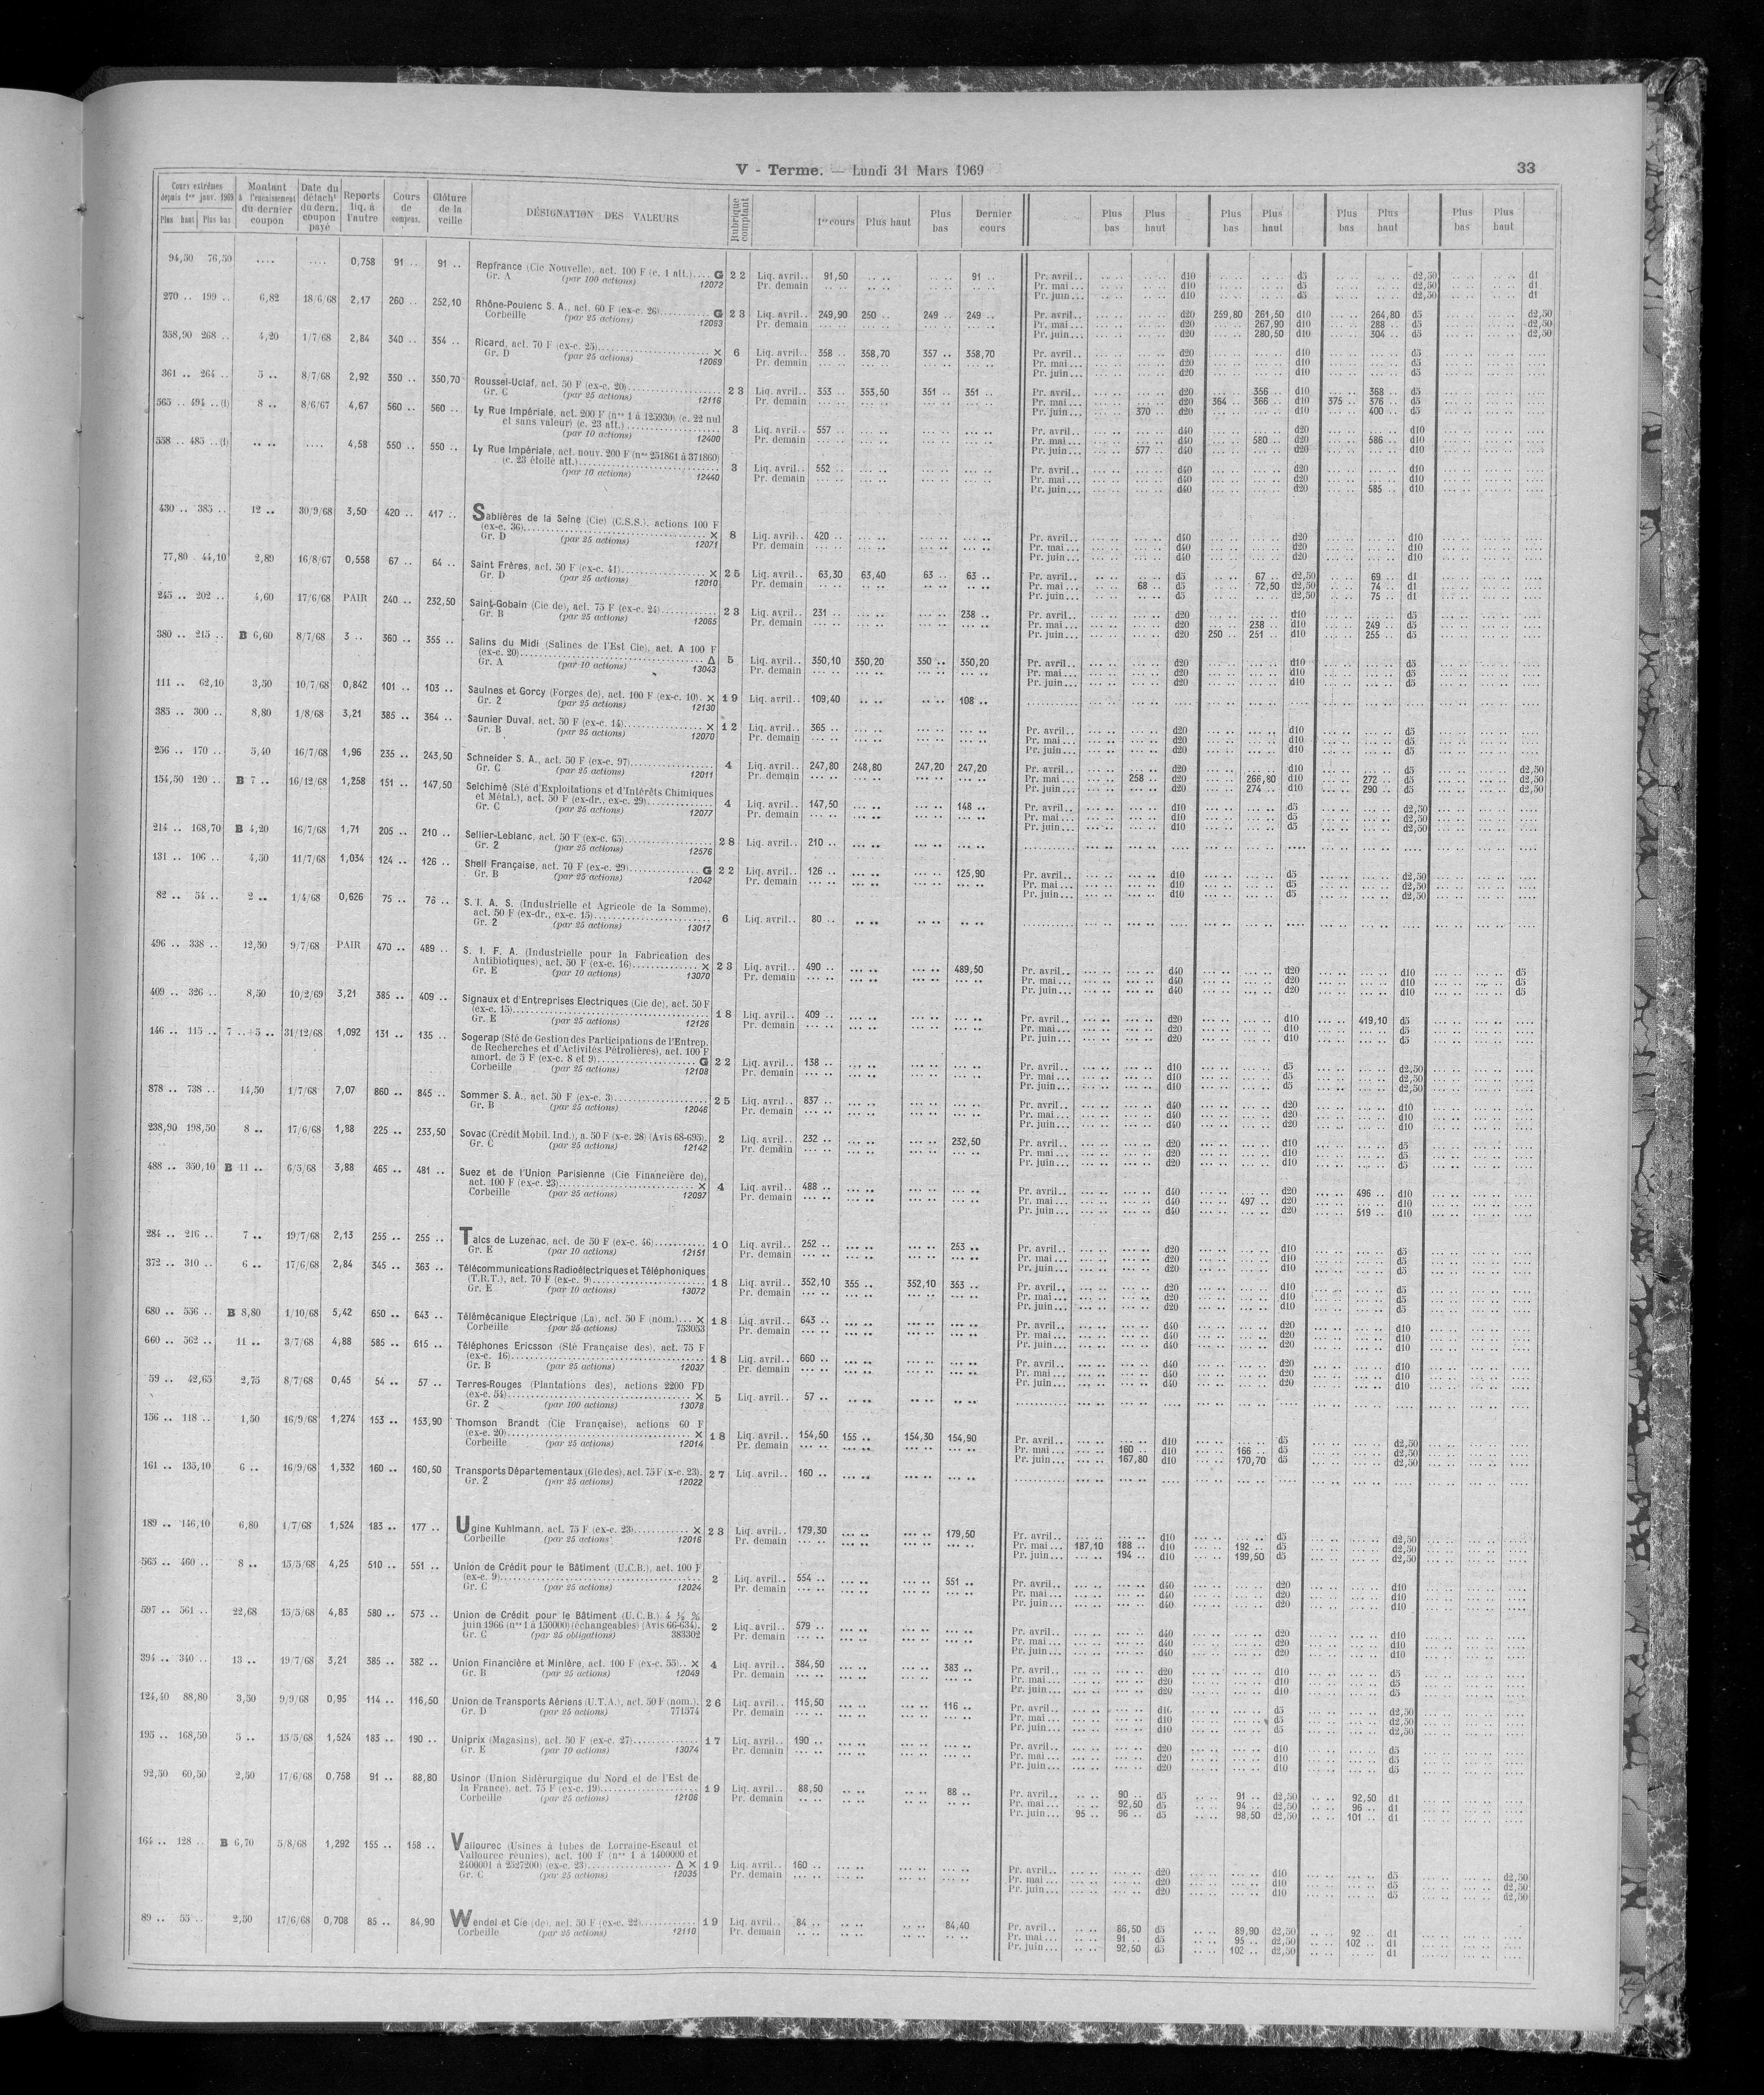 V - Terme. — Lundi 31 Mars 1969 33
Cours extrêmes depuis 1er janv. 1969 Plus haut Plus bas Montant à l'encaissement du dernier coupon Date du détacht du dern. coupon payé Reports liq. à l'autre Cours de compens. Clôture de la veille DÉSIGNATION DES VALEURS Rubrique comptant 1er cours Plus haut Plus bas Dernier cours Plus bas Plus haut Plus bas Plus haut Plus bas Plus haut Plus bas Plus haut
94,50 76,50 .... .... 0,758 91 .. 91 .. Repfrance (Cie Nouvelle), act. 100 F (c. 1 att.).... G 22 Liq. avril.. 91,50 .. .. .. .. 91 .. Pr. avril.. d10 d5 d2,50 d1
Gr. A (par 100 actions) 12072 Pr. demain Pr. mai... d10 d5 d2,50 d1
Pr. juin... d10 d5 d2,50 d1
270 .. 199 .. 6,82 18/6/68 2,17 260 .. 252,10 Rhône-Poulenc S. A., act. 60 F (ex-c. 26).......... G 23 Liq. avril.. 249,90 250 .. 249 .. 249 .. Pr. avril.. d20 259,80 261,50 d10 264,80 d5 d2,50
Corbeille (par 25 actions) 12053 Pr. demain Pr. mai... d20 267,90 d10 288 .. d5 d2,50
Pr. juin... d20 280,50 d10 304 .. d5 d2,50
358,90 268 .. 4,20 1/7/68 2,84 340 .. 354 .. Ricard, act. 70 F (ex-c. 25).......... × 6 Liq. avril.. 358 .. 358,70 357 .. 358,70 Pr. avril.. d20 d10 d5
Gr. D (par 25 actions) 12069 Pr. demain Pr. mai... d20 d10 d5
Pr. juin... d20 d10 d5
361 .. 264 .. 5 .. 8/7/68 2,92 350 .. 350,70 Roussel-Uclaf, act. 50 F (ex-c. 20).......... 23 Liq. avril.. 353 .. 353,50 351 .. 351 .. Pr. avril.. d20 356 .. d10 368 .. d5
Gr. C (par 25 actions) 12116 Pr. demain Pr. mai... d20 364 .. 366 .. d10 375 .. 376 .. d5
Pr. juin... 370 .. d20 d10 400 .. d5
565 .. 494 .. (1) 8 .. 8/6/67 4,67 560 .. 560 .. Ly Rue Impériale, act. 200 F (nos 1 à 125930) (c. 22 nul
et sans valeur) (c. 23 att.).......... 3 Liq. avril.. 557 .. Pr. avril.. d40 d20 d10
(par 10 actions) 12400 Pr. demain Pr. mai... d40 580 .. d20 586 .. d10
Pr. juin... 577 .. d40 d20 d10
558 .. 485 .. (1) .. .. .... 4,58 550 .. 550 .. Ly Rue Impériale, act. nouv. 200 F (nos 251861 à 371860)
(c. 23 étoilé att.).......... 3 Liq. avril.. 552 .. Pr. avril.. d40 d20 d10
(par 10 actions) 12440 Pr. demain Pr. mai... d40 d20 d10
Pr. juin... d40 d20 585 .. d10
430 .. 385 .. 12 .. 30/9/68 3,50 420 .. 417 .. Sablières de la Seine (Cie) (C.S.S.), actions 100 F
(ex-c. 36).......... × 8 Liq. avril.. 420 .. Pr. avril.. d40 d20 d10
Gr. D (par 25 actions) 12071 Pr. demain Pr. mai... d40 d20 d10
Pr. juin... d40 d20 d10
77,80 44,10 2,89 16/8/67 0,558 67 .. 64 .. Saint Frères, act. 50 F (ex-c. 41).......... × 25 Liq. avril.. 63,30 63,40 63 .. 63 .. Pr. avril.. d5 67 .. d2,50 69 .. d1
Gr. D (par 25 actions) 12010 Pr. demain Pr. mai... 68 .. d5 72,50 d2,50 74 .. d1
Pr. juin... d5 d2,50 75 .. d1
245 .. 202 .. 4,60 17/6/68 PAIR 240 .. 232,50 Saint-Gobain (Cie de), act. 75 F (ex-c. 24).......... 23 Liq. avril.. 231 .. 238 .. Pr. avril.. d20 d10 d5
Gr. B (par 25 actions) 12065 Pr. demain Pr. mai... d20 238 .. d10 249 .. d5
Pr. juin... d20 250 .. 251 .. d10 255 .. d5
380 .. 215 .. B 6,60 8/7/68 3 .. 360 .. 355 .. Salins du Midi (Salines de l'Est Cie), act. A 100 F
(ex-c. 20).......... Δ 5 Liq. avril.. 350,10 350,20 350 .. 350,20 Pr. avril.. d20 d10 d5
Gr. A (par 10 actions) 13043 Pr. demain Pr. mai... d20 d10 d5
Pr. juin... d20 d10 d5
111 .. 62,10 3,50 10/7/68 0,842 101 .. 103 .. Saulnes et Gorcy (Forges de), act. 100 F (ex-c. 10). × 19 Liq. avril.. 109,40 108 ..
Gr. 2 (par 25 actions) 12130
385 .. 300 .. 8,80 1/8/68 3,21 385 .. 364 .. Saunier Duval, act. 50 F (ex-c. 14).......... × 12 Liq. avril.. 365 .. Pr. avril.. d20 d10 d5
Gr. B (par 25 actions) 12070 Pr. demain Pr. mai... d20 d10 d5
Pr. juin... d20 d10 d5
256 .. 170 .. 5,40 16/7/68 1,96 235 .. 243,50 Schneider S. A., act. 50 F (ex-c. 97).......... 4 Liq. avril.. 247,80 248,80 247,20 247,20 Pr. avril.. d20 d10 d5 d2,50
Gr. C (par 25 actions) 12011 Pr. demain Pr. mai... 258 .. d20 266,80 d10 272 .. d5 d2,50
Pr. juin... d20 274 .. d10 290 .. d5 d2,50
154,50 120 .. B 7 .. 16/12/68 1,258 151 .. 147,50 Selchimé (Sté d'Exploitations et d'Intérêts Chimiques
et Métal.), act. 50 F (ex-dr., ex-c. 29).......... 4 Liq. avril.. 147,50 148 .. Pr. avril.. d10 d5 d2,50
Gr. C (par 25 actions) 12077 Pr. demain Pr. mai... d10 d5 d2,50
Pr. juin... d10 d5 d2,50
214 .. 168,70 B 4,20 16/7/68 1,71 205 .. 210 .. Sellier-Leblanc, act. 50 F (ex-c. 65).......... 28 Liq. avril.. 210 ..
Gr. 2 (par 25 actions) 12576
131 .. 106 .. 4,50 11/7/68 1,034 124 .. 126 .. Shell Française, act. 70 F (ex-c. 29).......... G 22 Liq. avril.. 126 .. 125,90 Pr. avril.. d10 d5 d2,50
Gr. B (par 25 actions) 12042 Pr. demain Pr. mai... d10 d5 d2,50
Pr. juin... d10 d5 d2,50
82 .. 54 .. 2 .. 1/4/68 0,626 75 .. 76 .. S. I. A. S. (Industrielle et Agricole de la Somme),
act. 50 F (ex-dr., ex-c. 15).......... 6 Liq. avril.. 80 ..
Gr. 2 (par 25 actions) 13017
496 .. 338 .. 12,50 9/7/68 PAIR 470 .. 489 .. S. I. F. A. (Industrielle pour la Fabrication des
Antibiotiques), act. 50 F (ex-c. 16).......... × 23 Liq. avril.. 490 .. 489,50 Pr. avril.. d40 d20 d10 d5
Gr. E (par 10 actions) 13070 Pr. demain Pr. mai... d40 d20 d10 d5
Pr. juin... d40 d20 d10 d5
409 .. 326 .. 8,50 10/2/69 3,21 385 .. 409 .. Signaux et d'Entreprises Electriques (Cie de), act. 50 F
(ex-c. 15).......... 18 Liq. avril.. 409 .. Pr. avril.. d20 d10 419,10 d5
Gr. E (par 25 actions) 12126 Pr. demain Pr. mai... d20 d10 d5
Pr. juin... d20 d10 d5
146 .. 115 .. 31/12/68 1,092 131 .. 135 .. Sogerap (Sté de Gestion des Participations de l'Entrep.
de Recherches et d'Activités Pétrolières), act. 100 F
amort. de 5 F (ex-c. 8 et 9).......... G 22 Liq. avril.. 138 .. Pr. avril.. d10 d5 d2,50
Corbeille (par 25 actions) 12108 Pr. demain Pr. mai... d10 d5 d2,50
Pr. juin... d10 d5 d2,50
878 .. 738 .. 14,50 1/7/68 7,07 860 .. 845 .. Sommer S. A., act. 50 F (ex-c. 3).......... 25 Liq. avril.. 837 .. Pr. avril.. d40 d20 d10
Gr. B (par 25 actions) 12046 Pr. demain Pr. mai... d40 d20 d10
Pr. juin... d40 d20 d10
238,90 198,50 8 .. 17/6/68 1,88 225 .. 233,50 Sovac (Crédit Mobil. Ind.), a. 50 F (x-c. 28) (Avis 68-695). 2 Liq. avril.. 232 .. 232,50 Pr. avril.. d20 d10 d5
Gr. C (par 25 actions) 12142 Pr. demain Pr. mai... d20 d10 d5
Pr. juin... d20 d10 d5
488 .. 350,10 B 11 .. 6/5/68 3,88 465 .. 481 .. Suez et de l'Union Parisienne (Cie Financière de),
act. 100 F (ex-c. 23).......... × 4 Liq. avril.. 488 .. Pr. avril.. d40 d20 496 .. d10
Corbeille (par 25 actions) 12097 Pr. demain Pr. mai... d40 497 .. d20 d10
Pr. juin... d40 d20 519 .. d10
284 .. 216 .. 7 .. 19/7/68 2,13 255 .. 255 .. Talcs de Luzenac, act. de 50 F (ex-c. 46).......... 10 Liq. avril.. 252 .. 253 .. Pr. avril.. d20 d10 d5
Gr. E (par 10 actions) 12151 Pr. demain Pr. mai... d20 d10 d5
Pr. juin... d20 d10 d5
372 .. 310 .. 6 .. 17/6/68 2,84 345 .. 363 .. Télécommunications Radioélectriques et Téléphoniques
(T.R.T.), act. 70 F (ex-c. 9).......... 18 Liq. avril.. 352,10 355 .. 352,10 353 .. Pr. avril.. d20 d10 d5
Gr. E (par 10 actions) 13072 Pr. demain Pr. mai... d20 d10 d5
Pr. juin... d20 d10 d5
680 .. 556 .. B 8,80 1/10/68 5,42 650 .. 643 .. Télémécanique Electrique (La), act. 50 F (nom.)... × 18 Liq. avril.. 643 .. Pr. avril.. d40 d20 d10
Corbeille (par 25 actions) 753053 Pr. demain Pr. mai... d40 d20 d10
Pr. juin... d40 d20 d10
660 .. 562 .. 11 .. 3/7/68 4,88 585 .. 615 .. Téléphones Ericsson (Sté Française des), act. 75 F
(ex-c. 16).......... 18 Liq. avril.. 660 .. Pr. avril.. d40 d20 d10
Gr. B (par 25 actions) 12037 Pr. demain Pr. mai... d40 d20 d10
Pr. juin... d40 d20 d10
59 .. 42,65 2,75 8/7/68 0,45 54 .. 57 .. Terres-Rouges (Plantations des), actions 2200 FD
(ex-c. 54).......... × 5 Liq. avril.. 57 ..
Gr. 2 (par 100 actions) 13078
156 .. 118 .. 1,50 16/9/68 1,274 153 .. 153,90 Thomson Brandt (Cie Française), actions 60 F
(ex-c. 20).......... × 18 Liq. avril.. 154,50 155 .. 154,30 154,90 Pr. avril.. d10 d5 d2,50
Corbeille (par 25 actions) 12014 Pr. demain Pr. mai... 160 .. d10 166 .. d5 d2,50
Pr. juin... 167,80 d10 170,70 d5 d2,50
161 .. 135,10 6 .. 16/9/68 1,332 160 .. 160,50 Transports Départementaux (Gle des), act. 75 F (x-c. 23). 27 Liq. avril.. 160 ..
Gr. 2 (par 25 actions) 12022
189 .. 146,10 6,80 1/7/68 1,524 183 .. 177 .. Ugine Kuhlmann, act. 75 F (ex-c. 23).......... × 23 Liq. avril.. 179,30 179,50 Pr. avril.. d10 d5 d2,50
Corbeille (par 25 actions) 12016 Pr. demain Pr. mai... 187,10 188 .. d10 192 .. d5 d2,50
Pr. juin... 194 .. d10 199,50 d5 d2,50
565 .. 460 .. 8 .. 15/5/68 4,25 510 .. 551 .. Union de Crédit pour le Bâtiment (U.C.B.), act. 100 F
(ex-c. 9).......... 2 Liq. avril.. 554 .. 551 .. Pr. avril.. d40 d20 d10
Gr. C (par 25 actions) 12024 Pr. demain Pr. mai... d40 d20 d10
Pr. juin... d40 d20 d10
597 .. 561 .. 22,68 15/5/68 4,83 580 .. 573 .. Union de Crédit pour le Bâtiment (U.C.B.) 4 ½ %
juin 1966 (nos 1 à 150000) (échangeables) (Avis 66-634). 2 Liq. avril.. 579 .. Pr. avril.. d40 d20 d10
Gr. C (par 25 obligations) 383302 Pr. demain Pr. mai... d40 d20 d10
Pr. juin... d40 d20 d10
394 .. 340 .. 13 .. 19/7/68 3,21 385 .. 382 .. Union Financière et Minière, act. 100 F (ex-c. 55).. × 4 Liq. avril.. 384,50 383 .. Pr. avril.. d20 d10 d5
Gr. B (par 25 actions) 12049 Pr. demain Pr. mai... d20 d10 d5
Pr. juin... d20 d10 d5
124,40 88,80 3,50 9/9/68 0,95 114 .. 116,50 Union de Transports Aériens (U.T.A.), act. 50 F (nom.). 26 Liq. avril.. 115,50 116 .. Pr. avril.. d10 d5 d2,50
Gr. D (par 25 actions) 771574 Pr. demain Pr. mai... d10 d5 d2,50
Pr. juin... d10 d5 d2,50
195 .. 168,50 5 .. 15/5/68 1,524 183 .. 190 .. Uniprix (Magasins), act. 50 F (ex-c. 27).......... 17 Liq. avril.. 190 .. Pr. avril.. d20 d10 d5
Gr. E (par 10 actions) 13074 Pr. demain Pr. mai... d20 d10 d5
Pr. juin... d20 d10 d5
92,50 60,50 2,50 17/6/68 0,758 91 .. 88,80 Usinor (Union Sidérurgique du Nord et de l'Est de
la France), act. 75 F (ex-c. 19).......... 19 Liq. avril.. 88,50 88 .. Pr. avril.. 90 .. d5 91 .. d2,50 92,50 d1
Corbeille (par 25 actions) 12106 Pr. demain Pr. mai... 92,50 d5 94 .. d2,50 96 .. d1
Pr. juin... 95 .. 96 .. d5 98,50 d2,50 101 .. d1
164 .. 128 .. B 6,70 5/8/68 1,292 155 .. 158 .. Vallourec (Usines à tubes de Lorraine-Escaut et
Vallourec réunies), act. 100 F (nos 1 à 1400000 et
2400001 à 2527200) (ex-c. 23).......... Δ × 19 Liq. avril.. 160 .. Pr. avril.. d20 d10 d5 d2,50
Gr. C (par 25 actions) 12035 Pr. demain Pr. mai... d20 d10 d5 d2,50
Pr. juin... d20 d10 d5 d2,50
89 .. 55 .. 2,50 17/6/68 0,708 85 .. 84,90 Wendel et Cie (de), act. 50 F (ex-c. 22).......... 19 Liq. avril.. 84 .. 84,40 Pr. avril.. 86,50 d5 89,90 d2,50 92 .. d1
Corbeille (par 25 actions) 12110 Pr. demain Pr. mai... 91 .. d5 95 .. d2,50 102 .. d1
Pr. juin... 92,50 d5 102 .. d2,50 d1